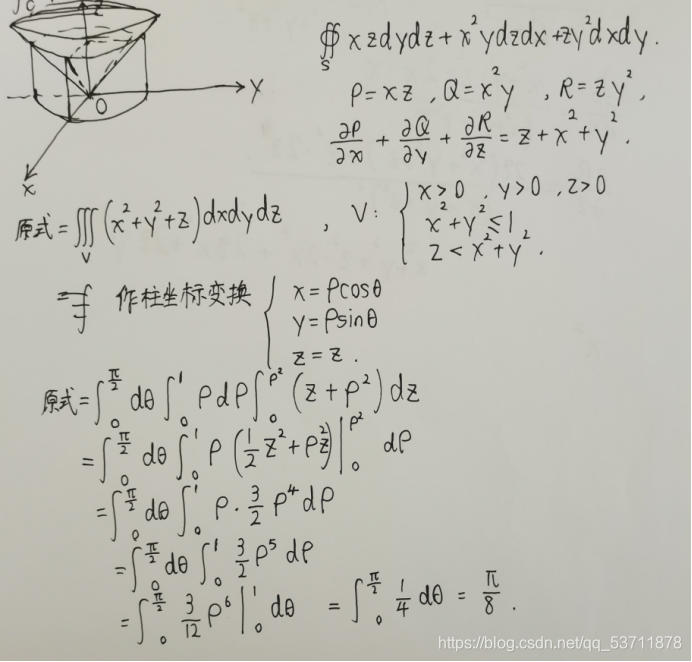 z
Y
O
x
∯ xzdydz + x²ydzdx + zy²dxdy.
S
P = xz , Q = x²y , R = zy² ,
∂P/∂x + ∂Q/∂y + ∂R/∂z = z + x² + y² .
原式 = ∭_V (x² + y² + z) dxdydz , V: { x>0 , y>0 , z>0
x² + y² ≤ 1 ,
z < x² + y² .
作柱坐标变换 { x = ρcosθ
y = ρsinθ
z = z .
原式 = ∫₀^{π/2} dθ ∫₀^1 ρdρ ∫₀^{ρ²} (z + ρ²) dz
= ∫₀^{π/2} dθ ∫₀^1 ρ (½z² + ρ²z) |₀^{ρ²} dρ
= ∫₀^{π/2} dθ ∫₀^1 ρ · 3/2 ρ⁴ dρ
= ∫₀^{π/2} dθ ∫₀^1 3/2 ρ⁵ dρ
= ∫₀^{π/2} 3/12 ρ⁶ |₀^1 dθ = ∫₀^{π/2} 1/4 dθ = π/8 .
https://blog.csdn.net/qq_53711878